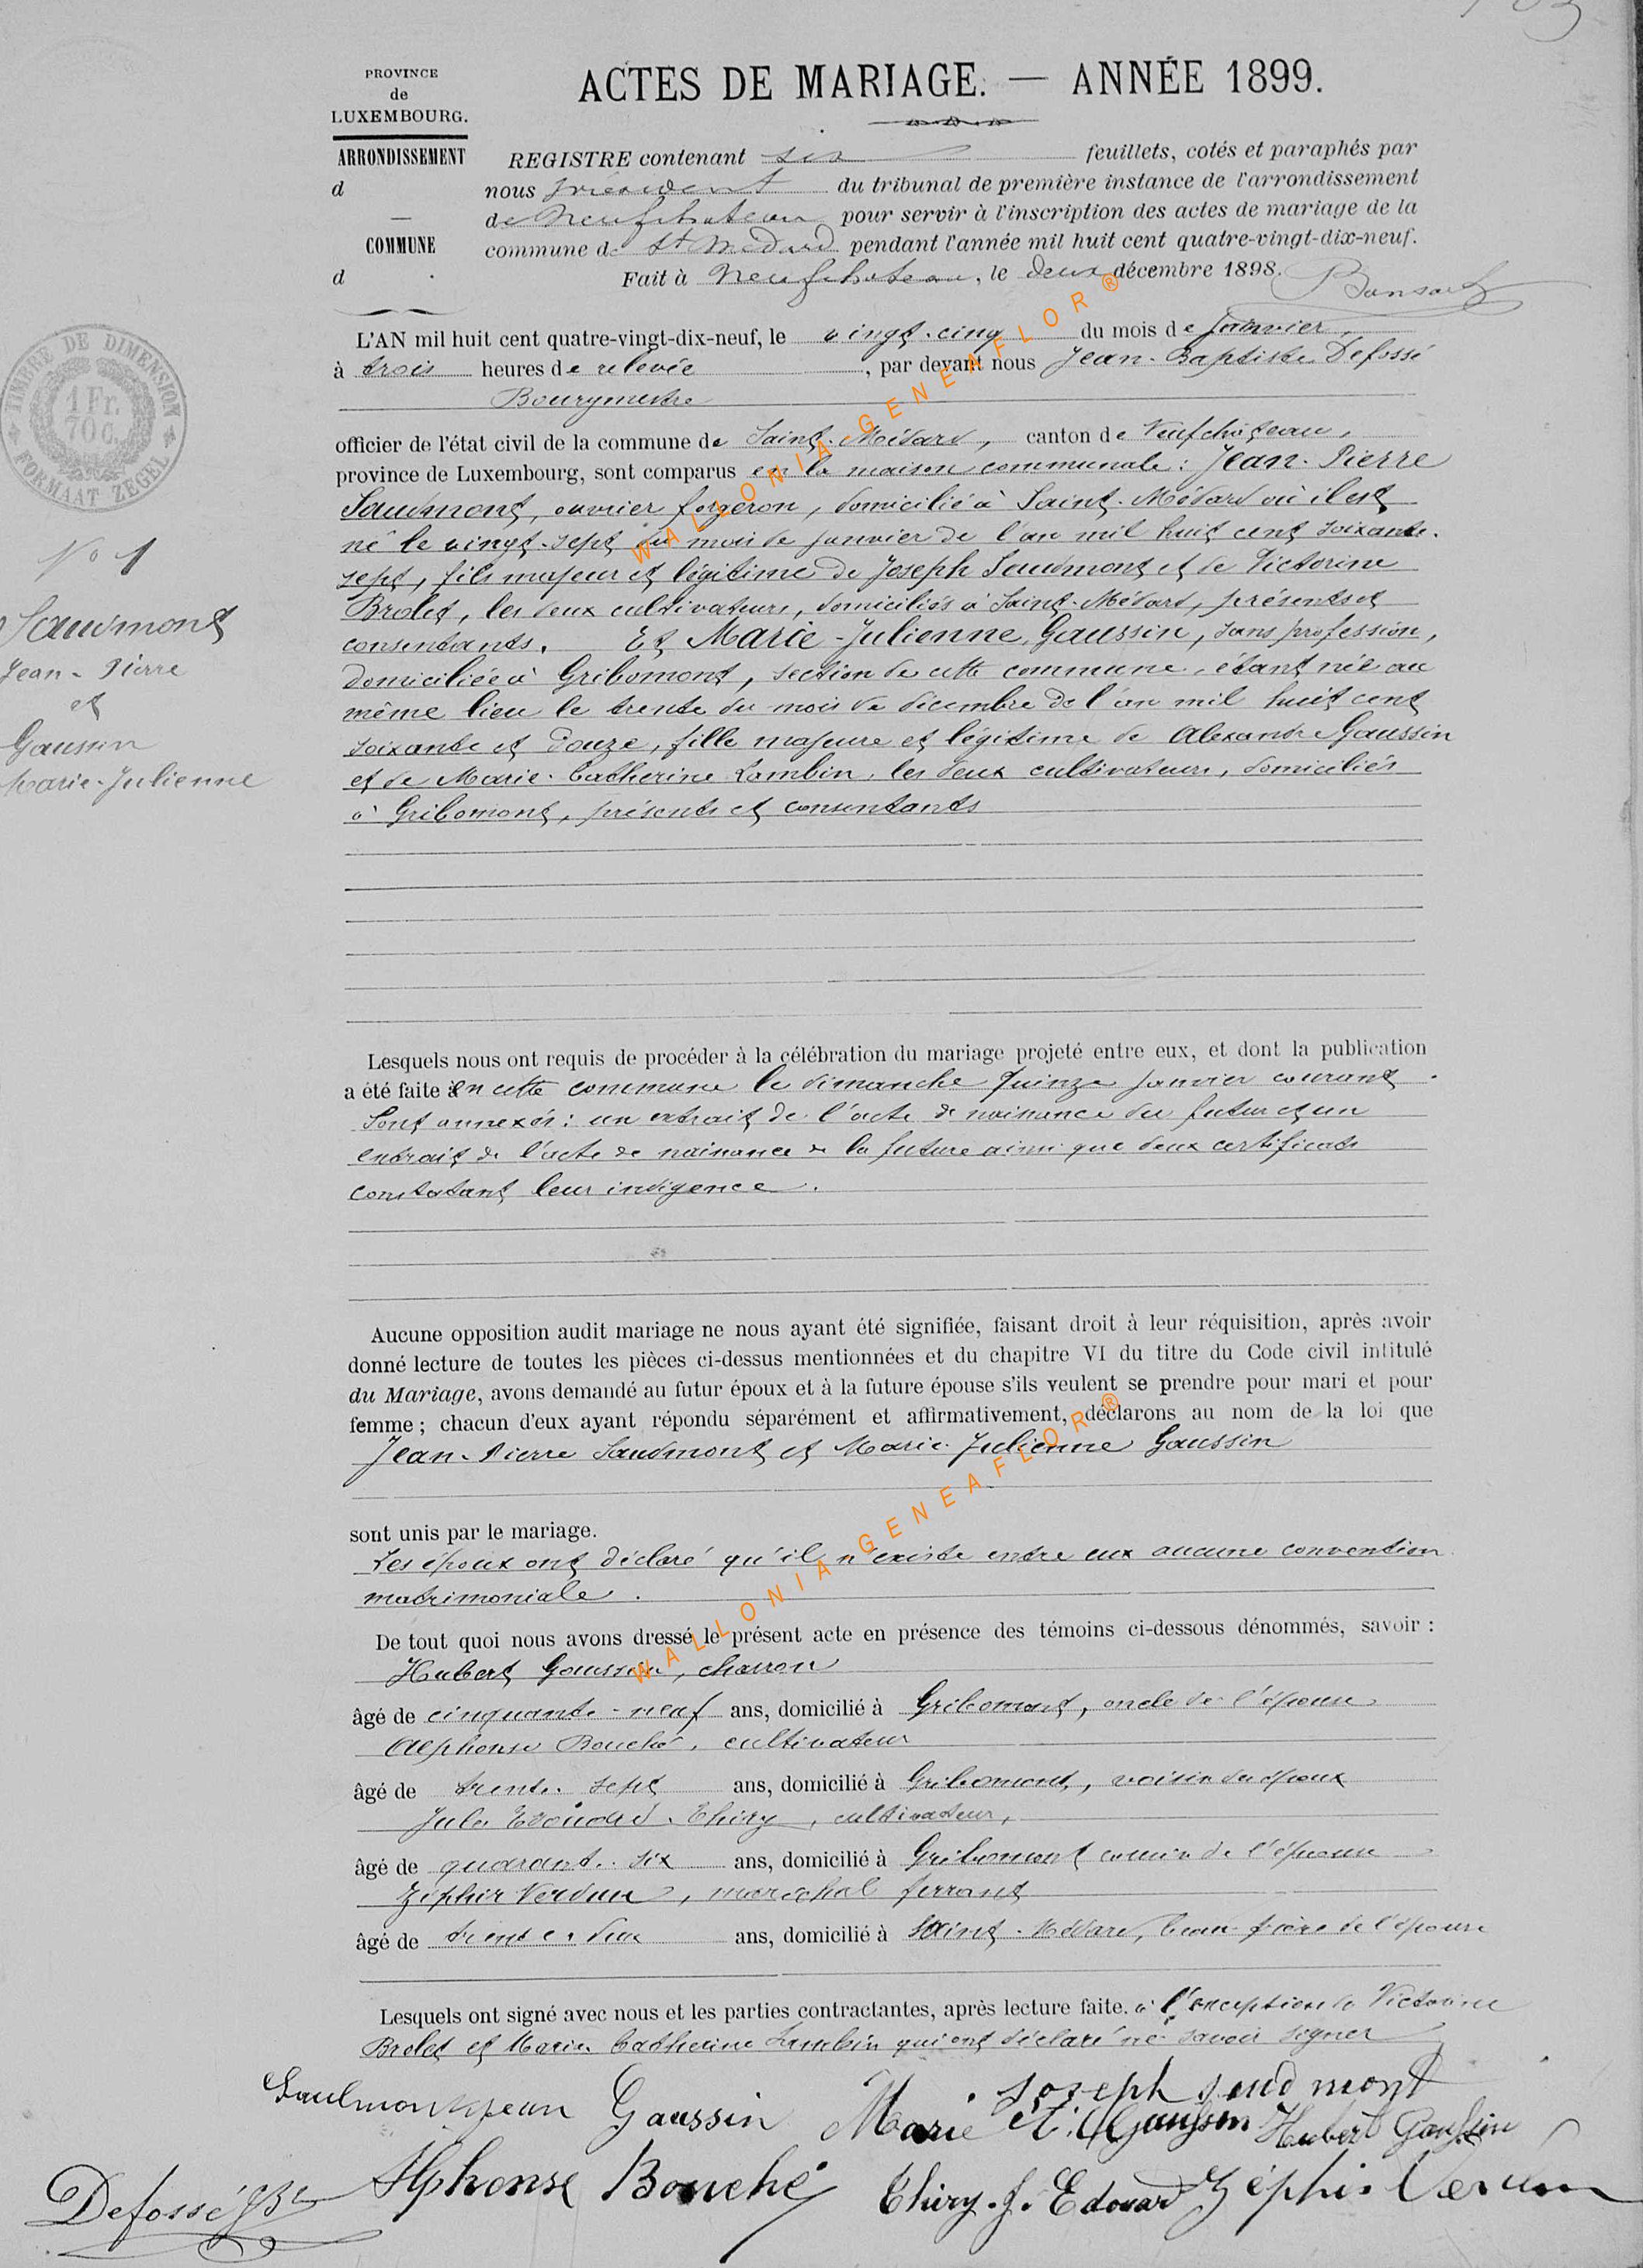 103
PROVINCE
de
LUXEMBOURG.
ACTES DE MARIAGE. — ANNÉE 1899.
ARRONDISSEMENT
d
COMMUNE
d
REGISTRE contenant six feuillets, cotés et paraphés par
nous président du tribunal de première instance de l'arrondissement
de Neufchateau pour servir à l'inscription des actes de mariage de la
commune de St Médard pendant l'année mil huit cent quatre-vingt-dix-neuf.
Fait à Neufchateau, le deux décembre 1898.
TIMBRE DE DIMENSION
1 Fr.
70 C.
FORMAAT ZEGEL
L'AN mil huit cent quatre-vingt-dix-neuf, le vingt-cinq du mois de janvier,
à trois heures de relevée, par devant nous Jean-Baptiste Defossé
Bourgmestre
officier de l'état civil de la commune de Saint-Médard, canton de Neufchâteau,
province de Luxembourg, sont comparus en la maison communale : Jean-Pierre
Saudmont, ouvrier forgeron, domicilié à Saint-Médard où il est
né le vingt-sept du mois de janvier de l'an mil huit cent soixante-
sept, fils majeur et légitime de Joseph Saudmont et de Victorine
Brolet, les deux cultivateurs, domiciliés à Saint-Médard, présents et
consentants. Et Marie-Julienne Gaussin, sans profession,
domiciliée à Gribomont, section de cette commune, étant née au
même lieu le trente du mois de décembre de l'an mil huit cent
soixante et douze, fille majeure et légitime de Alexandre Gaussin
et de Marie-Catherine Lambin, les deux cultivateurs, domiciliés
à Gribomont, présents et consentants
No 1
Saudmont
Jean-Pierre
et
Gaussin
Marie-Julienne
Lesquels nous ont requis de procéder à la célébration du mariage projeté entre eux, et dont la publication
a été faite en cette commune le dimanche quinze janvier courant.
Sont annexés : un extrait de l'acte de naissance du futur et un
extrait de l'acte de naissance de la future ainsi que deux certificats
constatant leur indigence.
Aucune opposition audit mariage ne nous ayant été signifiée, faisant droit à leur réquisition, après avoir
donné lecture de toutes les pièces ci-dessus mentionnées et du chapitre VI du titre du Code civil intitulé
du Mariage, avons demandé au futur époux et à la future épouse s'ils veulent se prendre pour mari et pour
femme ; chacun d'eux ayant répondu séparément et affirmativement, déclarons au nom de la loi que
Jean-Pierre Saudmont et Marie-Julienne Gaussin
sont unis par le mariage.
Les époux ont déclaré qu'il n'existe entre eux aucune convention
matrimoniale.
De tout quoi nous avons dressé le présent acte en présence des témoins ci-dessous dénommés, savoir :
Hubert Gaussin, charron
âgé de cinquante-neuf ans, domicilié à Gribomont, oncle de l'épouse
Alphonse Bouché, cultivateur
âgé de trente-sept ans, domicilié à Gribomont, voisin des époux
Jules Edouard Thiry, cultivateur,
âgé de quarante-six ans, domicilié à Gribomont cousin de l'épouse
Zéphir Verdun, maréchal ferrant
âgé de trente-deux ans, domicilié à Saint-Médard, beau-frère de l'épouse
Lesquels ont signé avec nous et les parties contractantes, après lecture faite. à l'exception de Victorine
Brolet et Marie Catherine Lambin qui ont déclaré ne savoir signer
Saulmont jean Gaussin Marie Joseph Saudmont
Gaussin Hubert Gaussin
Defossé JBte Alphonse Bouché Thiry. J. Edouard Zéphir Verdun
WALLONIA GENEAFLOR ®
WALLONIA GENEAFLOR ®